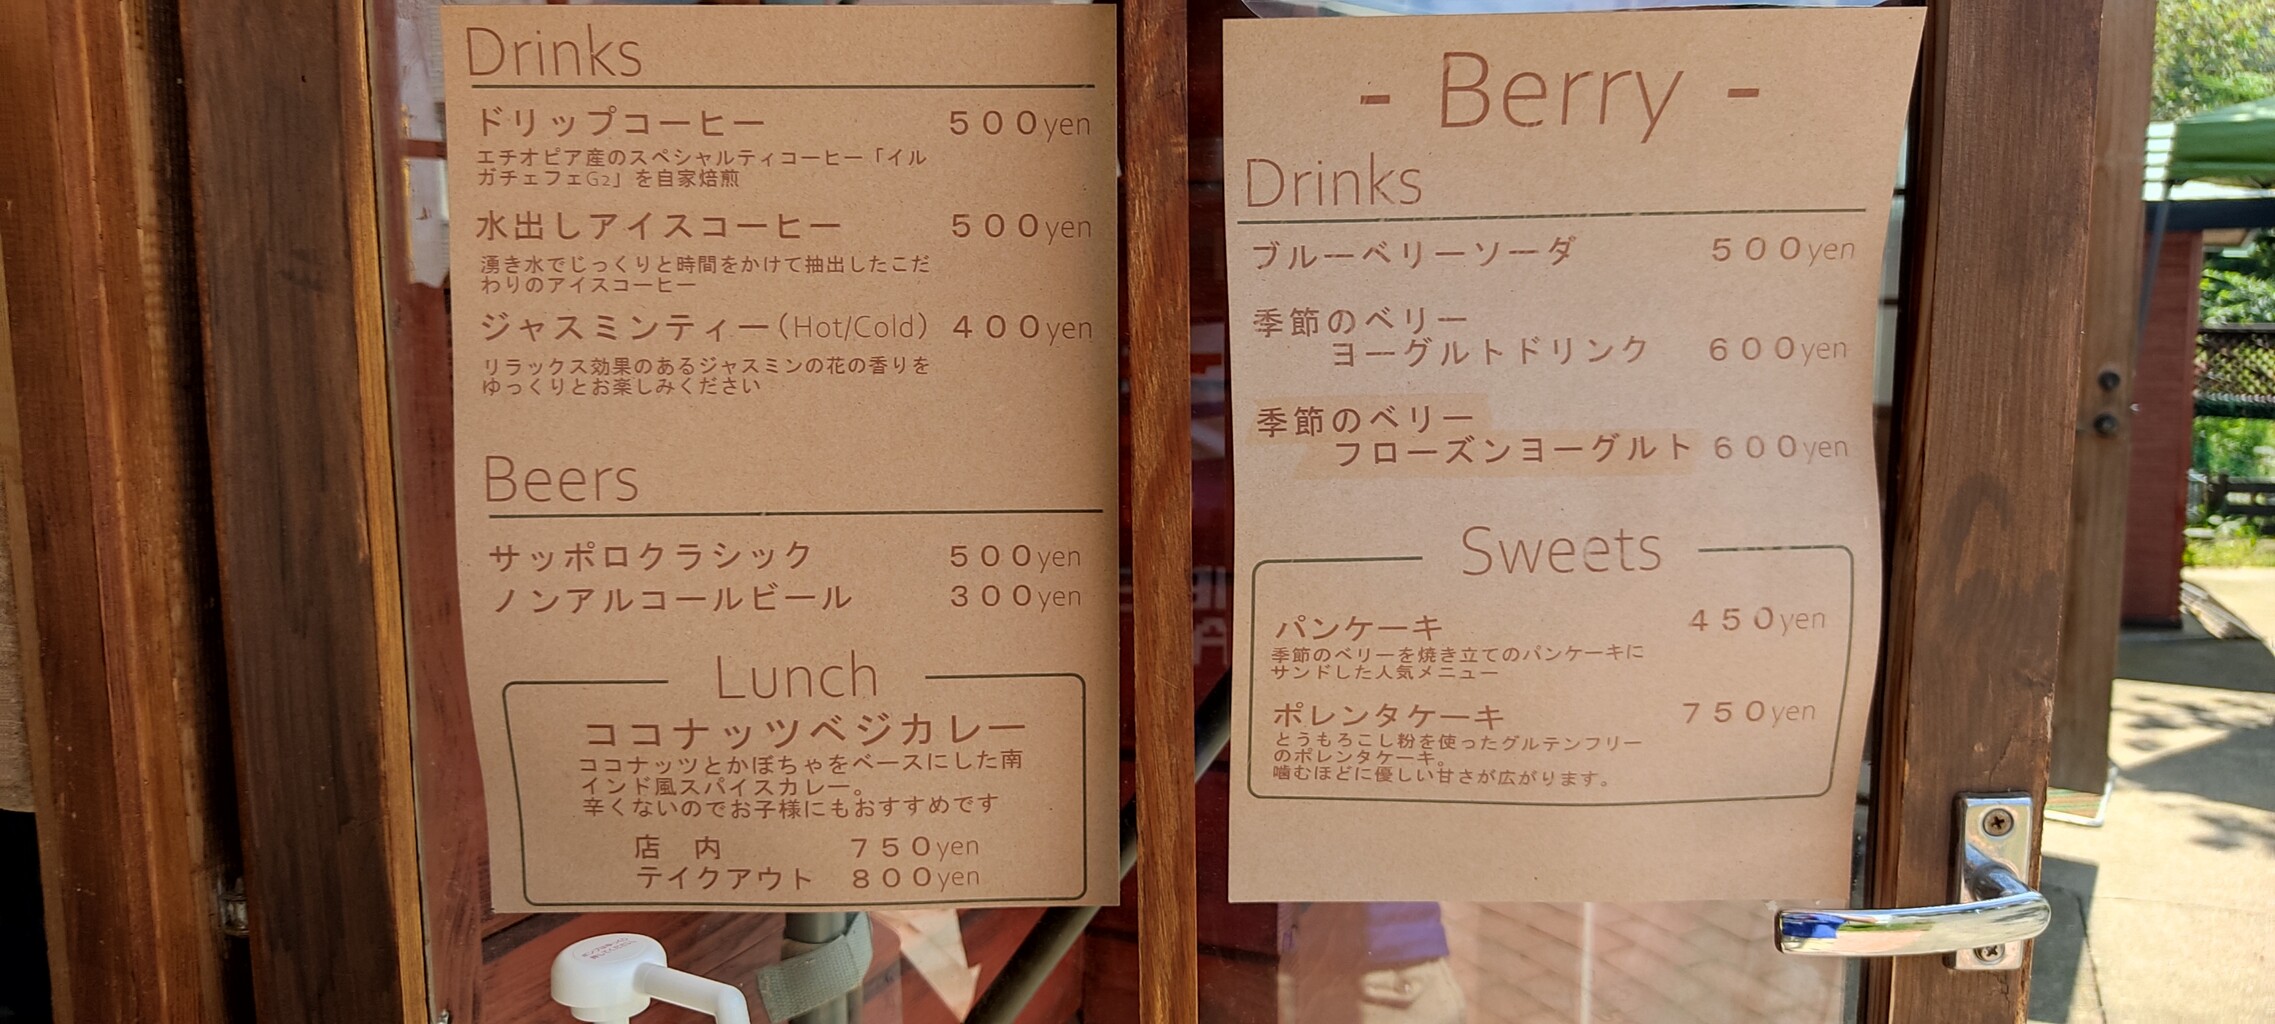 Drinks
ドリップコーヒー 500yen
エチオピア産のスペシャルティコーヒー「イル
ガチェフェG2」を自家焙煎
水出しアイスコーヒー 500yen
湧き水でじっくりと時間をかけて抽出したこだ
わりのアイスコーヒー
ジャスミンティー(Hot/Cold) 400yen
リラックス効果のあるジャスミンの花の香りを
ゆっくりとお楽しみください
Beers
サッポロクラシック 500yen
ノンアルコールビール 300yen
Lunch
ココナッツベジカレー
ココナッツとかぼちゃをベースにした南
インド風スパイスカレー。
辛くないのでお子様にもおすすめです
店 内 750yen
テイクアウト 800yen
- Berry -
Drinks
ブルーベリーソーダ 500yen
季節のベリー
ヨーグルトドリンク 600yen
季節のベリー
フローズンヨーグルト 600yen
Sweets
パンケーキ 450yen
季節のベリーを焼き立てのパンケーキに
サンドした人気メニュー
ポレンタケーキ 750yen
とうもろこし粉を使ったグルテンフリー
のポレンタケーキ。
噛むほどに優しい甘さが広がります。